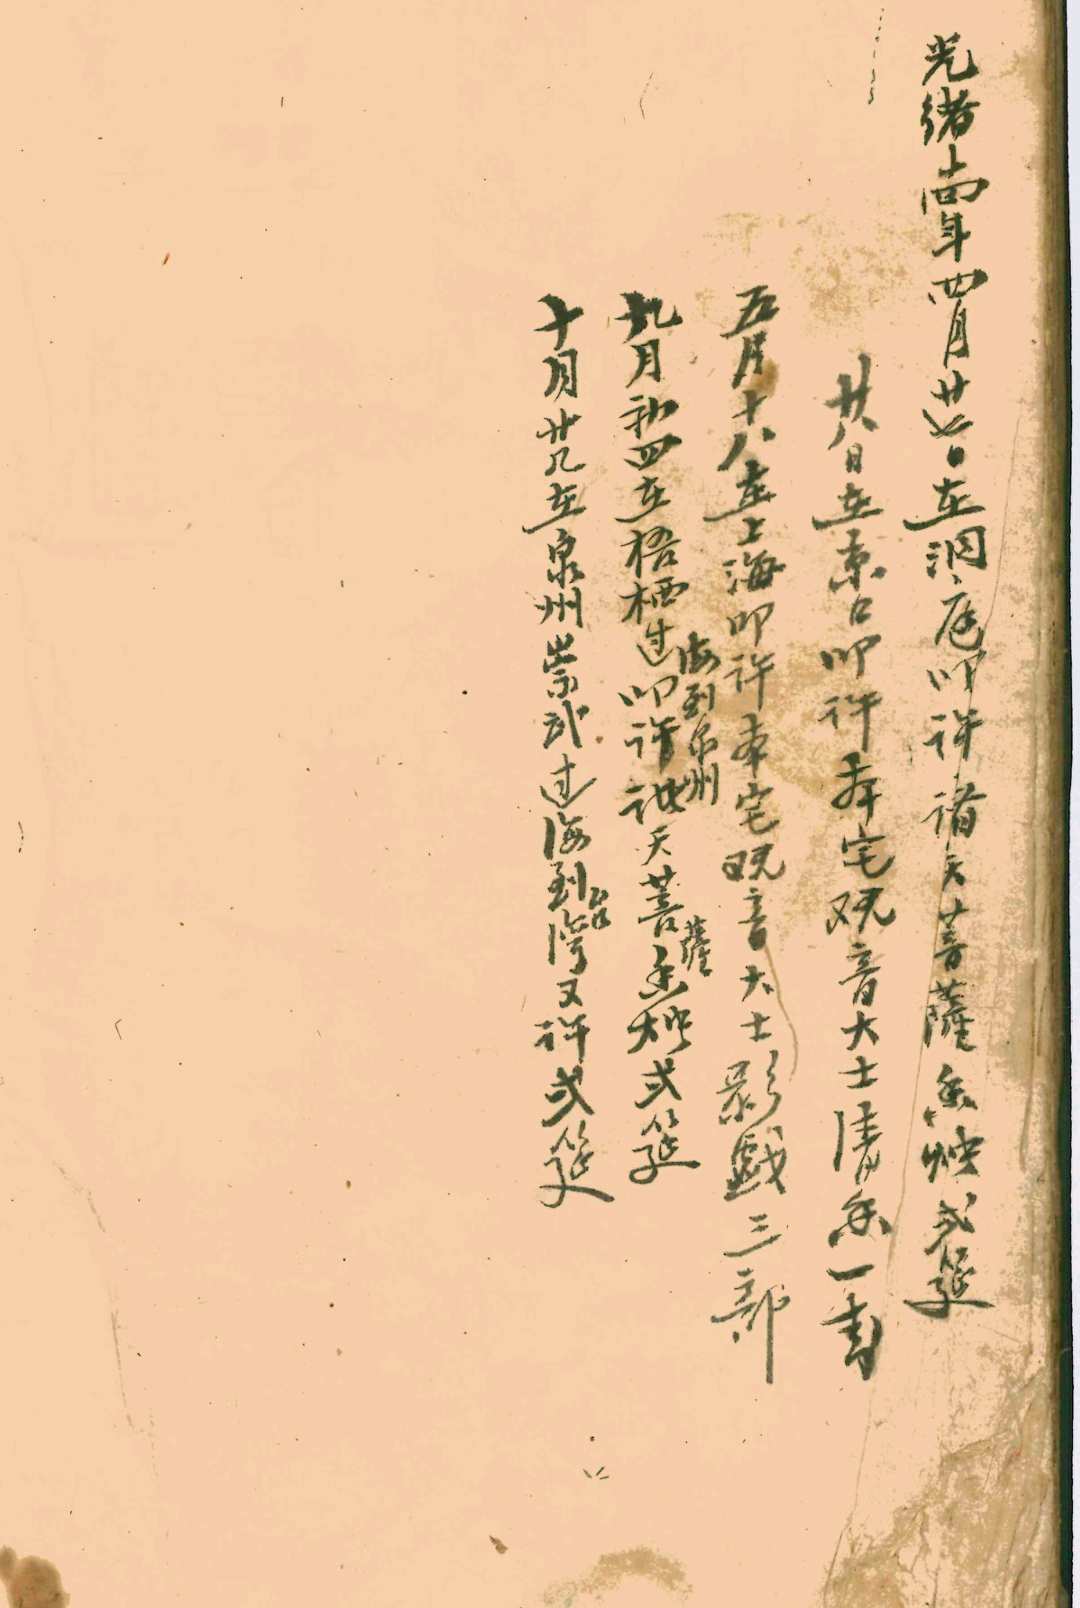 光緒十四年四月廿七日在洞庭叩許諸天菩薩香燭弍筵
廿八日在京口叩許本宅观音大士清香一
五月十八在上海叩許本宅观音大士影戲三部
九月初四在梧栖过海到泉州叩許諸天菩薩香烛弍筵
十月廿九在泉州崇武过海到台湾又許弍筵